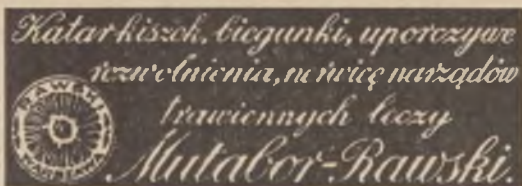 Katar kiszek, biegunki, uporczywe
rozwolnienia, nerwicę narządów
trawiennych leczy
Mutabor-Rawski.
RAWSKI
WARSZAWA